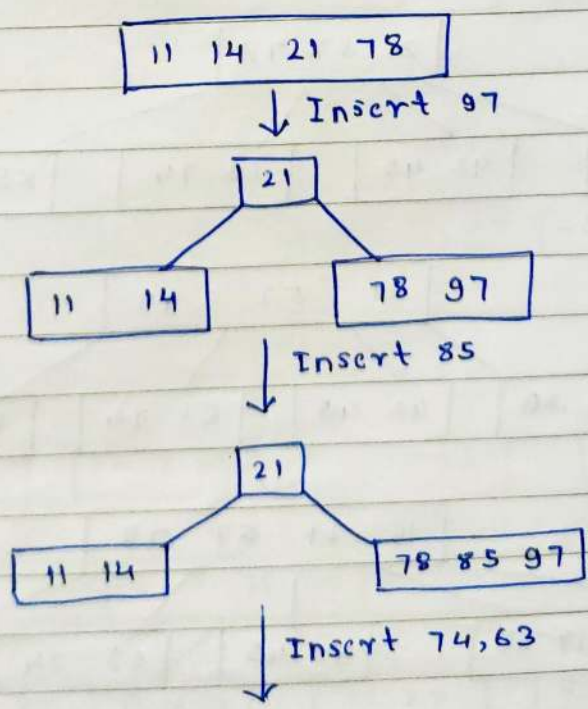 11 14 21 78
Insert 97
21
11 14
78 97
Insert 85
21
11 14
78 85 97
Insert 74,63